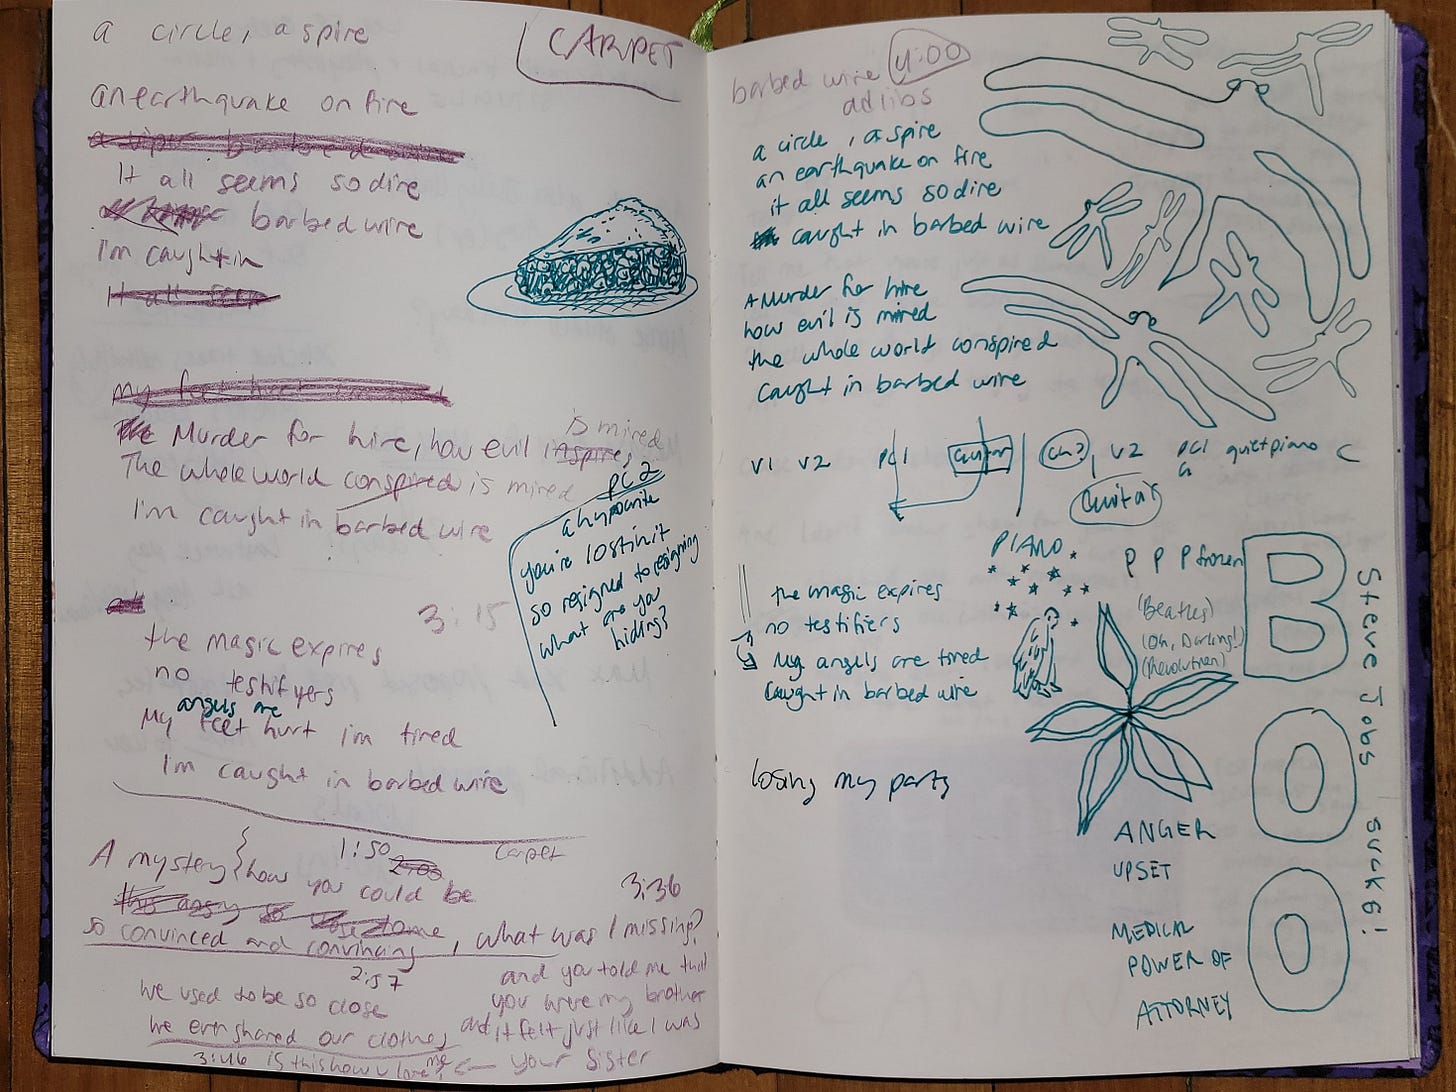 a circle, a spire
CARPET
an earthquake on fire
It all seems so dire
barbed wire
I'm caught in
It all seem
is mired
The Murder for hire, how evil
The whole world conspired is mired
I'm caught in barbed wire
PC 2
a hypocrite
you're lost in it
so resigned to resigning
what are you
hiding?
3:15
the magic expires
no testifyers
angels are
My feet hurt im tired
I'm caught in barbed wire
1:50 2:00 Carpet
A mystery { how you could be
3:36
so convinced and convincing, what was I missing?
2:57
we used to be so close
we even shared our clothes
and you told me that
you were my brother
and it felt just like I was
your sister
3:46 is this how u love me? ←
barbed wire 4:00
adlibs
a circle, a spire
an earthquake on fire
it all seems so dire
caught in barbed wire
A Murder for hire
how evil is mired
the whole world conspired
caught in barbed wire
V1 V2 PC1 guitar Ch? V2 PC1 quiet piano C
Guitar
PIANO
P P P frozen
(Beatles)
(Oh, Darling!)
(Revolution)
the magic expires
no testifiers
My angels are tired
caught in barbed wire
losing my parts
ANGER
UPSET
MEDICAL
POWER OF
ATTORNEY
BOO
Steve Jobs sucks!